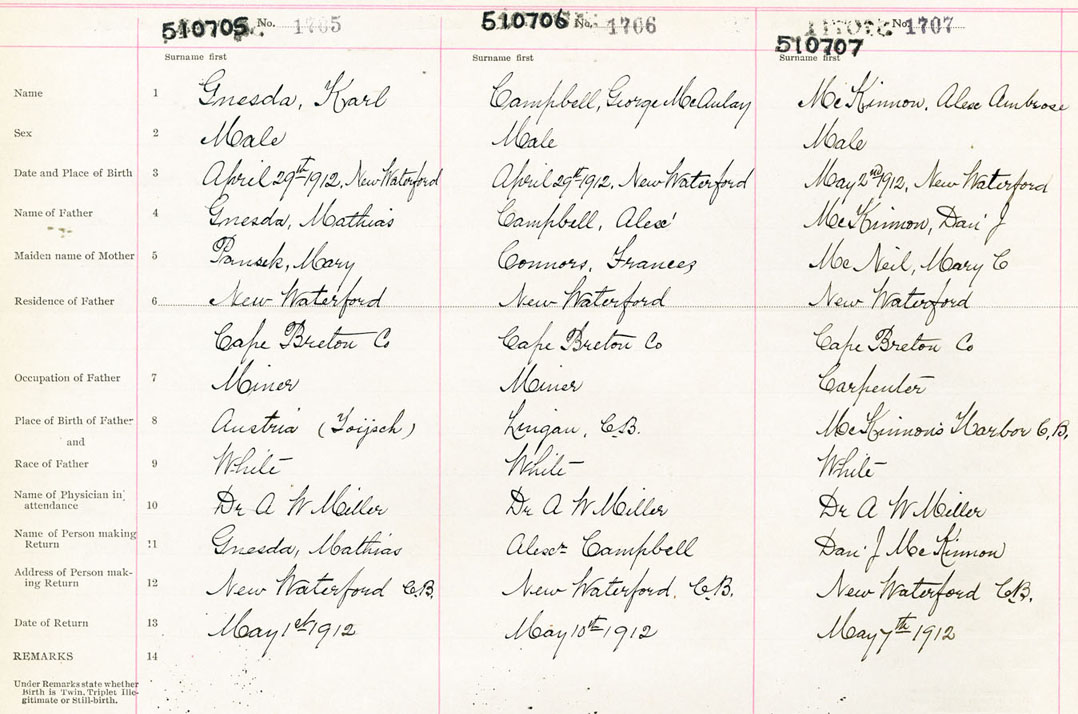 510705 No. 1705 510706 No. 1706 No. 1707
510707
Surname first Surname first Surname first
Name 1 Gnesda, Karl Campbell, George McAulay McKinnon, Alex Ambrose
Sex 2 Male Male Male
Date and Place of Birth 3 April 29th 1912, New Waterford April 29th 1912, New Waterford May 2nd 1912, New Waterford
Name of Father 4 Gnesda, Mathias Campbell, Alex' McKinnon, Dan' J
Maiden name of Mother 5 Mary Connors, Frances Mc Neil, Mary C
Residence of Father 6 New Waterford New Waterford New Waterford
Cape Breton Co Cape Breton Co Cape Breton Co
Occupation of Father 7 Miner Miner Carpenter
Place of Birth of Father 8 Austria Lingan, C.B. McKinnon's Harbor C.B.
and
Race of Father 9 White White White
Name of Physician in
attendance 10 Dr A W Miller Dr A W Miller Dr A W Miller
Name of Person making
Return 11 Gnesda, Mathias Alexr Campbell Dan' J McKinnon
Address of Person mak-
ing Return 12 New Waterford C.B. New Waterford, C.B. New Waterford C.B.
Date of Return 13 May 1st 1912 May 10th 1912 May 7th 1912
REMARKS 14
Under Remarks state whether
Birth is Twin, Triplet Ille-
gitimate or Still-birth.